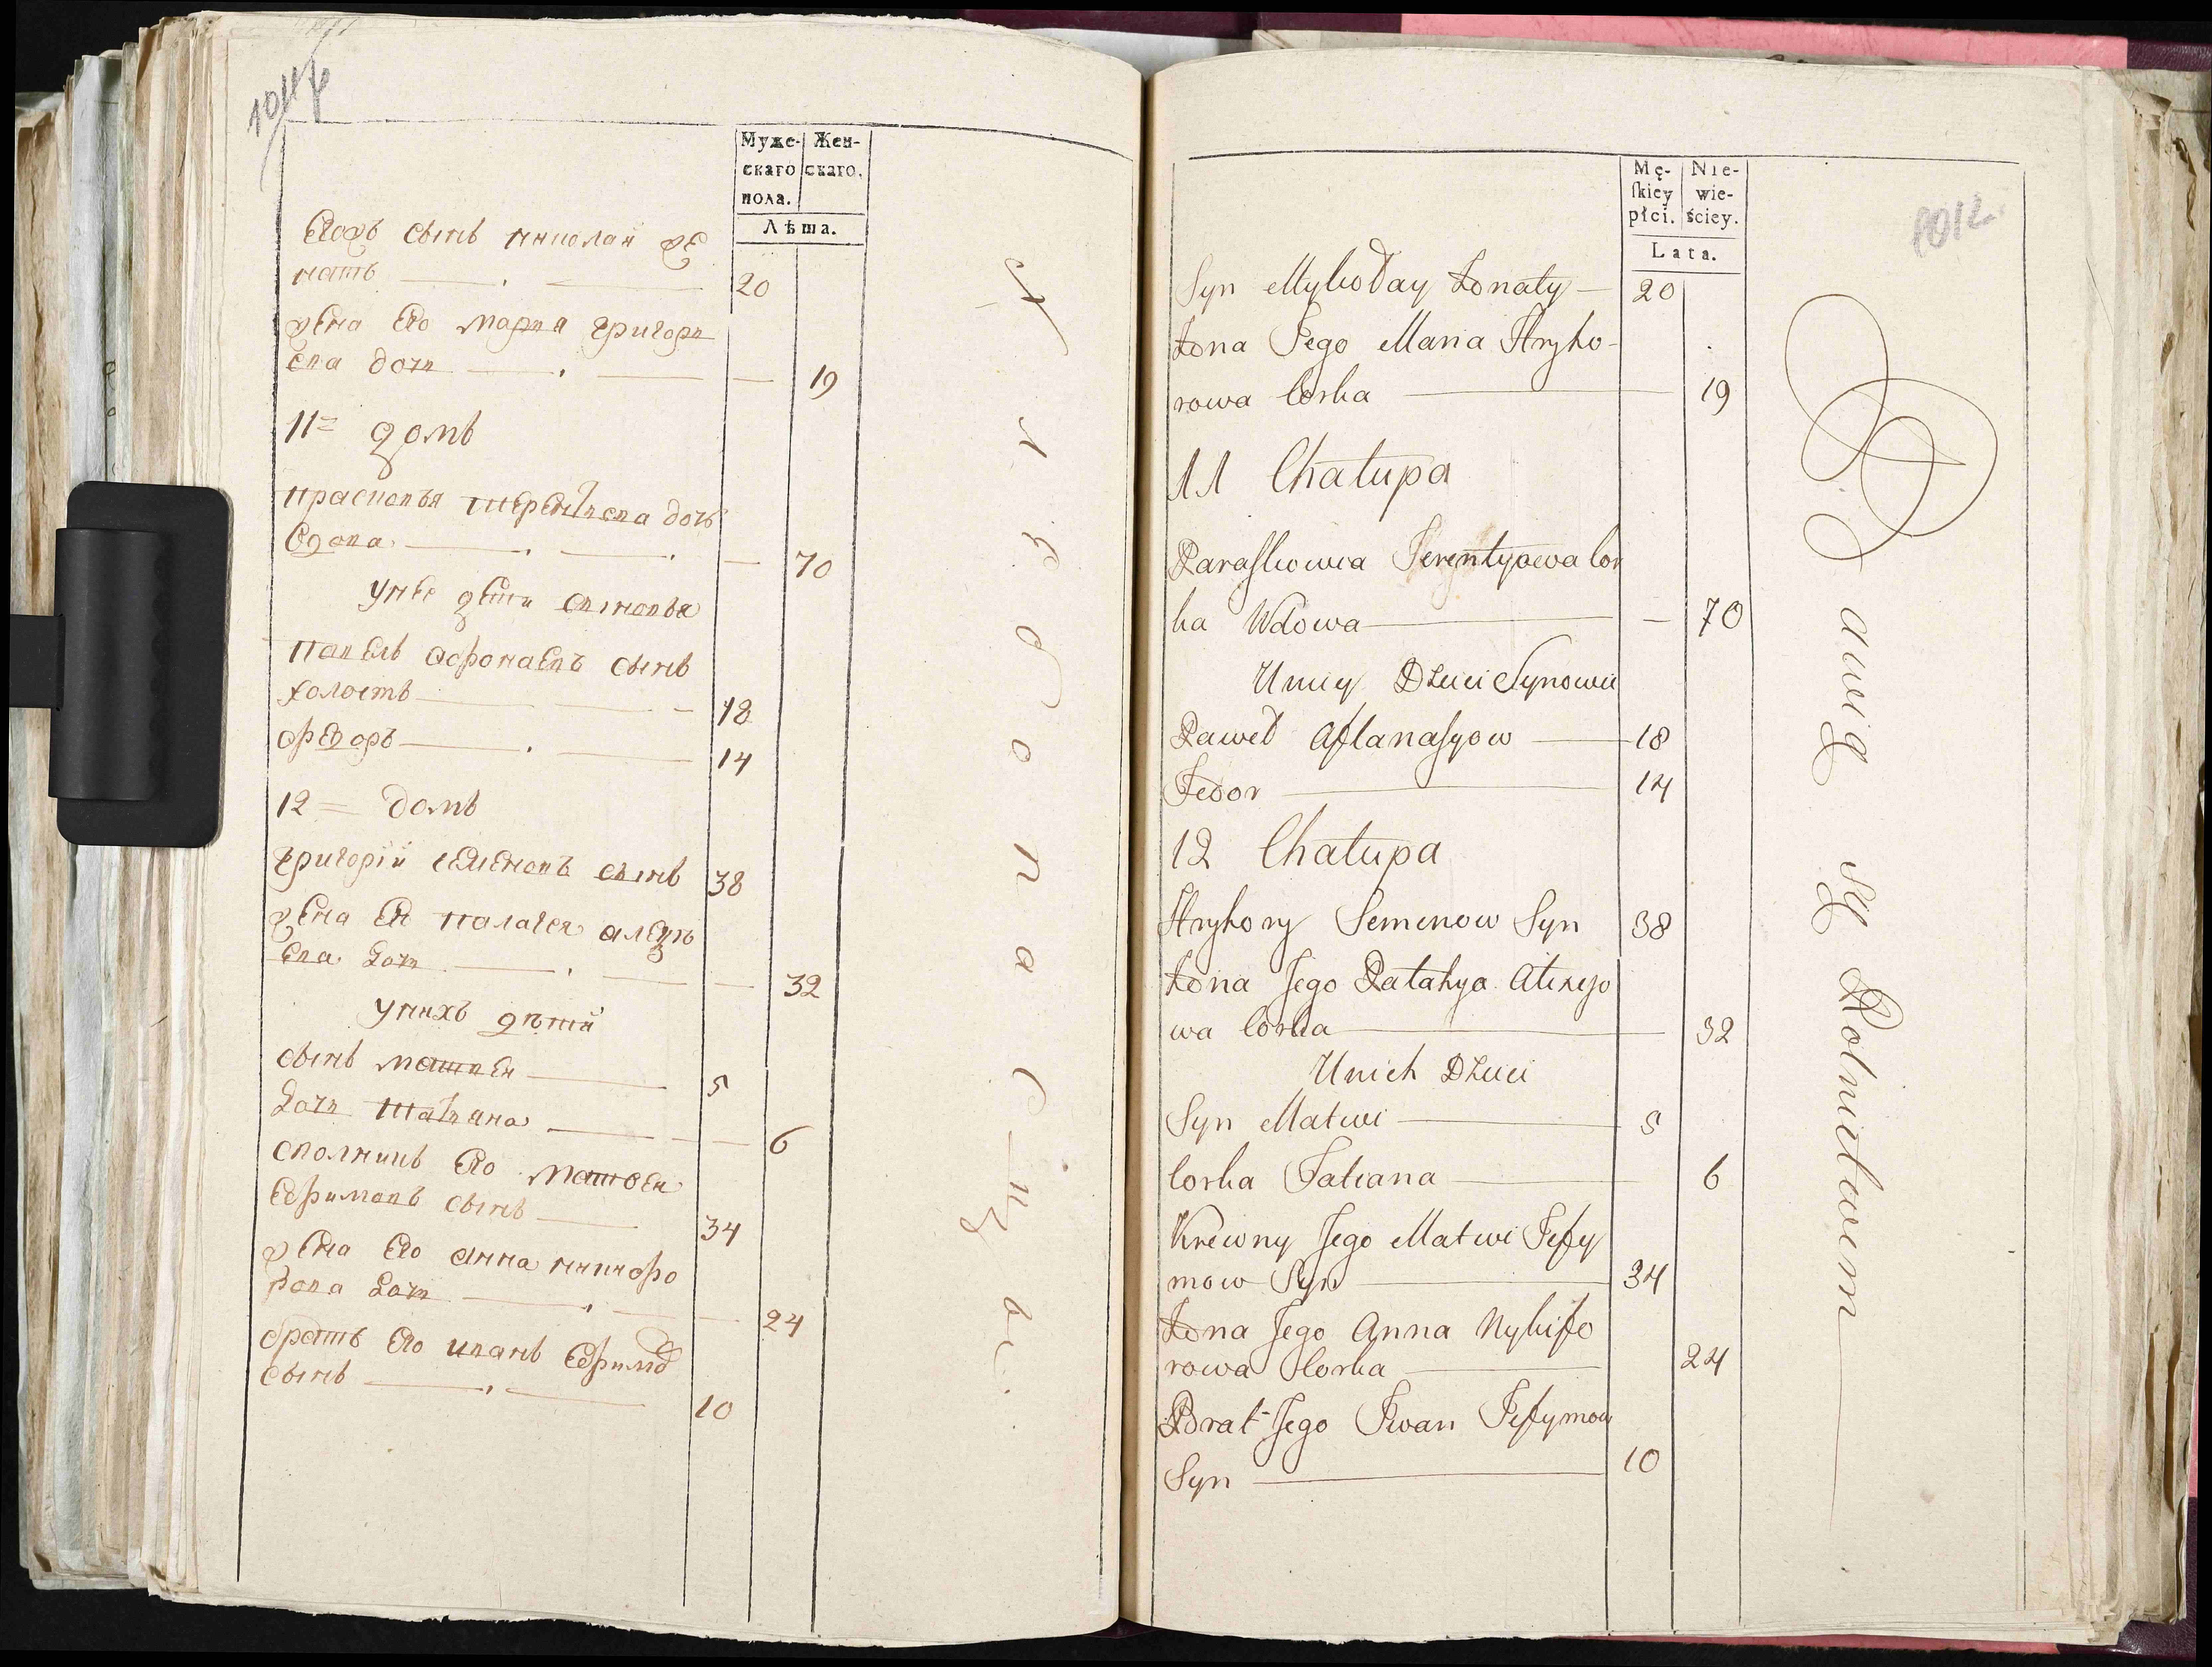 1011
Муже-
скаго
пола.
Жен-
скаго.
Лѣта.
Егожъ сынъ николай же
натъ
20
жена Его мария григори
Ева дочи
19
11= домъ
прасковья терентиева дочь
вдова
70
унее дети
павелъ афонаевъ сынъ
холостъ
18
федоръ
14
12= домъ
григорiй семеновъ сынъ
38
жена Ег палагея алексѣ
Ева дочи
32
унихъ дѣти
сынъ матвеи
5
дочи татиана
6
Его матвеи
Ефимовъ сынъ
34
жена Его анна никифо
рова дочи
24
братъ Его иванъ Ефимо
сынъ
10
Mę-
skiey
płci.
Nie-
wie-
ściey.
Lata.
1012
Syn Mykołay żonaty
20
żona Jego Maria Hryho-
rowa Corka
19
11 Chałupa
Paraskowia Terentyowa Cor
ka Wdowa
70
Uniey Dzieci Synowie
Paweł Aftanasyow
18
Fedor
14
12 Chałupa
Hryhory Semenow Syn
38
żona Jego Palahya Alexeio
wa Corka
32
Unich Dzieci
Syn Matwi
5
Corka Tatiana
6
Krewny Jego Matwi Jefy
mow Syn
34
żona Jego Anna Nykifo
rowa Corka
24
Brat Jego Iwan Jefymow
Syn
10